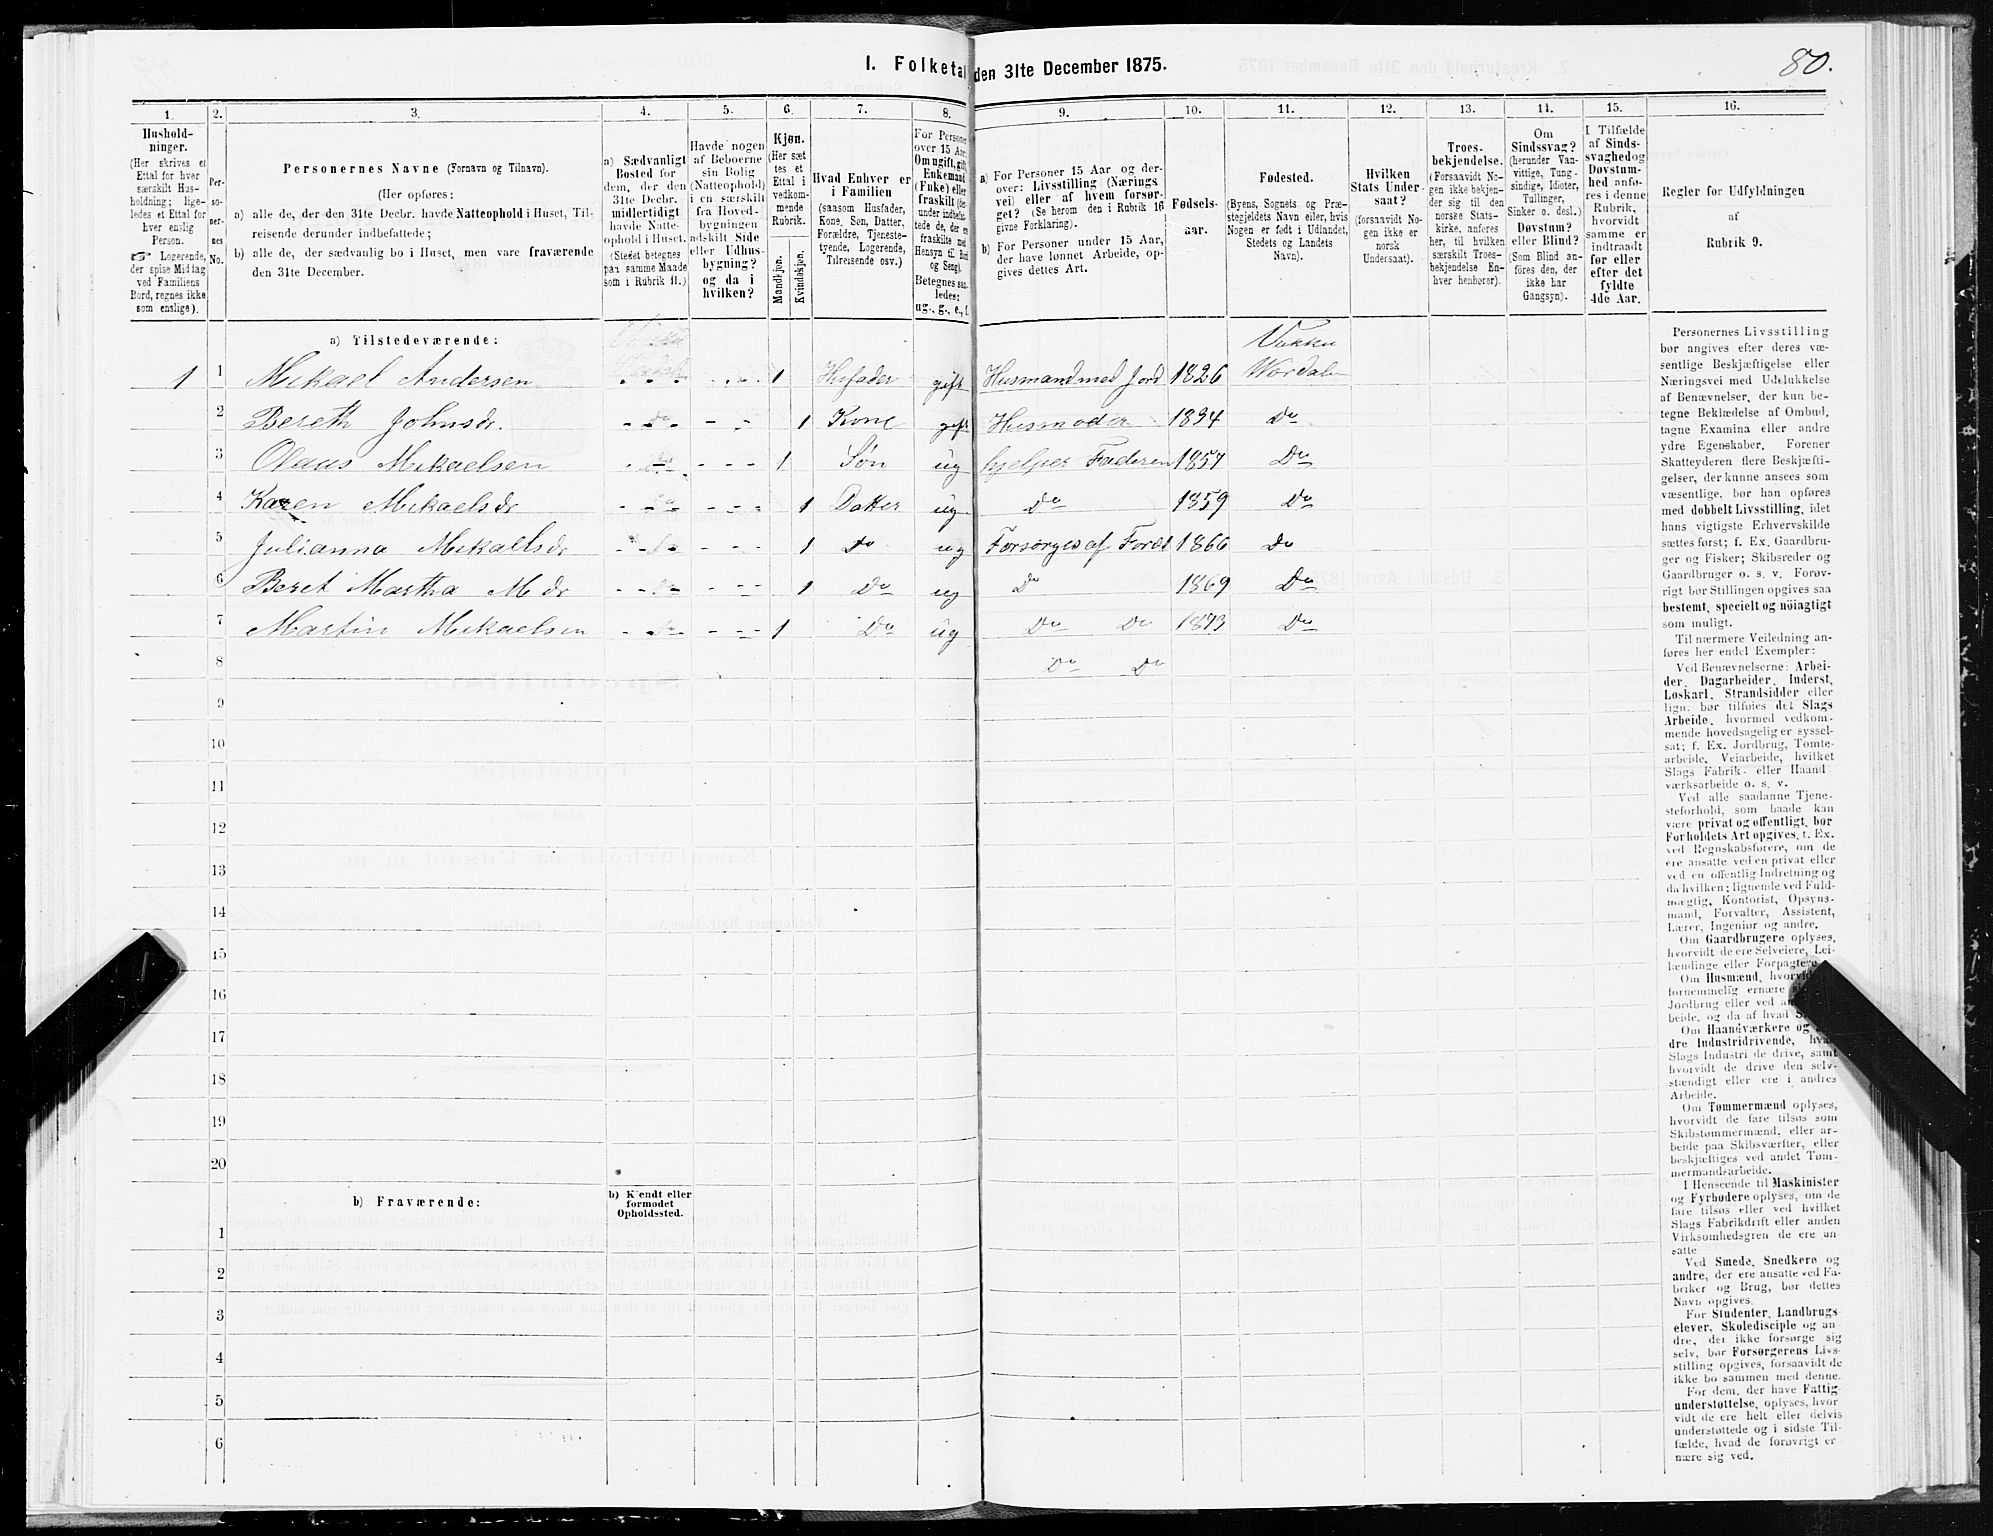 I. Folketal den 31te December 1875.
80.
1. 2. 3. 4. 5. 6. 7. 8. 9. 10. 11. 12. 13. 14. 15. 16.
Hushold-
ninger.
(Her skrives et
Ettal for hver
særskilt Hus-
holdning; lige-
ledes et Ettal for
hver enslig
Person.
☞ Logerende,
der spise Middag
ved Familiens
Bord, regnes ikke
som enslige).
Per-
so-
ner-
nes
No.
Personernes Navne (Fornavn og Tilnavn).
(Her opføres:
a) alle de, der den 31te Decbr. havde Natteophold i Huset, Til-
reisende derunder indbefattede;
b) alle de, der sædvanlig bo i Huset, men vare fraværende
den 31te December.
a) Sædvanligt
Bosted for
dem, der den
31te Decbr.
midlertidigt
havde Natte-
ophold i Huset.
(Stedet betegnes
paa samme Maade
som i Rubrik 11.)
Havde nogen
af Beboerne
sin Bolig
(Natteophold)
i en særskilt
fra Hoved-
bygningen
adskilt Side
eller Udhus-
bygning?
og da i
hvilken?
Kjøn.
(Her sæt
tes et
Ettal i
vedkom-
mende
Rubrik.
Mandkjøn.
Kvindekjøn.
Hvad Enhver er
i Familien
(saasom Husfader,
Kone, Søn, Datter,
Forældre, Tjeneste-
tyende, Logerende,
Tilreisende osv.)
For Personer
over 15 Aar:
Om ugift, gift,
Enkemand
(Enke) eller
fraskilt (der-
under indbefat-
tede de, der ere
fraskilte med
Hensyn til Bord
og Seng).
Betegnes saa-
ledes:
ug., g., e., f.
a) For Personer 15 Aar og der-
over: Livsstilling (Nærings
vei) eller af hvem forsør-
get? (Se herom den i Rubrik 16
givne Forklaring).
b) For Personer under 15 Aar,
der have lønnet Arbeide, op-
gives dettes Art.
Fødsels-
aar.
Fødested.
(Byens, Sognets og Præ-
stegjeldets Navn eller, hvis
Nogen er født i Udlandet,
Stedets og Landets
Navn).
Hvilken
Stats Under-
saat?
(forsaavidt No-
gen ikke er
norsk
Undersaat).
Troes-
bekjendelse.
(Forsaavidt No-
gen ikke bekjen-
der sig til den
norske Stats-
kirke, anføres
her, til hvilken
særskilt Troes-
bekjendelse En-
hver henhører).
Om
Sindssvag?
(herunder Van-
vittige, Tung-
sindige, Idioter,
Tullinger,
Sinker o. desl.)
Døvstum?
eller Blind?
(Som Blind an-
føres den, der
ikke har
Gangsyn).
I Tilfælde
af Sinds-
svaghed og
Døvstum-
hed anfø-
res i denne
Rubrik,
hvorvidt
samme er
indtraadt
før eller
efter det
fyldte
4de Aar.
Regler for Udfyldningen
af
Rubrik 9.
a) Tilstedeværende:
Vukku
1 1 Mikael Andersen 1 Husfader gift Husmand med Jord 1826 Wordalen
2 Bereth Johnsdr. Do 1 Kone gift Husmoder 1834 Do
3 Olaus Mikaelsen Do 1 Søn ug hjelper Faderen 1857 Do
4 Karen Mikaelsdr Do 1 Datter ug Do 1859 Do
5 Julianna Mikaelsdr Do 1 Do ug Forsørges af Foræl 1866 Do
6 Beret Martha M dr Do 1 Do ug Do 1869 Do
7 Martin Mikaelsen Do 1 Do ug Do Do 1873 Do
8 Do Do
9
10
11
12
13
14
15
16
17
18
19
20
b) Fraværende:
b) Kjendt eller
formodet
Opholdssted.
1
2
3
4
5
6
Personernes Livsstilling
bør angives efter deres væ-
sentlige Beskjæftigelse eller
Næringsvei med Udelukkelse
af Benævnelser, der kun be-
tegne Beklædelse af Ombud,
tagne Examina eller andre
ydre Egenskaber. Forener
Skatteyderen flere Beskjæfti-
gelser, der kunne ansees som
væsentlige, bør han opføres
med dobbelt Livsstilling, idet
hans vigtigste Erhvervskilde
sættes først; f. Ex. Gaardbru-
ger og Fisker; Skibsreder og
Gaardbruger o. s. v. Forøv-
rigt bør Stillingen opgives saa
bestemt, specielt og nöiagtigt
som muligt.
Til nærmere Veiledning an-
føres her endel Exempler:
Ved Benævnelserne: Arbei-
der, Dagarbeider, Inderst,
Løskarl, Strandsidder eller
lign. bør tilføies det Slags
Arbeide, hvormed vedkom-
mende hovedsagelig er syssel-
sat; f. Ex. Jordbrug, Tomte-
arbeide, Veiarbeide, hvilket
Slags Fabrik- eller Haand-
værksarbeide o. s. v.
Ved alle saadanne Tjene-
steforhold, som baade kan
være privat og offentligt, bør
Forholdets Art opgives, t. Ex.
ved Regnskabsførere, om de
ere ansatte ved en privat eller
ved en offentlig Indretning og
da hvilken; lignende ved Fuld-
mægtig, Kontorist, Opsyns-
mand, Forvalter, Assistent,
Lærer, Ingeniør og andre.
Om Gaardbrugere oplyses,
hvorvidt de ere Selveiere, Lei-
lændinge eller Forpagtere.
Om Husmænd, hvorvidt
fornemmelig ernære
Jordbrug eller ved an
beide, og da af hvad
Om Haandværkere og
dre Industridrivende, hvad
Slags Industri de drive, samt
hvorvidt de drive den selv-
stændigt eller ere i andres
Arbeide.
Om Tømmermænd oplyses,
hvorvidt de fare tilsøs som
Skibstømmermænd, eller ar-
beide paa Skibsværfter, eller
beskjæftiges ved andet Tøm-
mermandsarbeide.
I Henseende til Maskinister
og Fyrbødere oplyses, om de
fare tilsøs eller ved hvilket
Slags Fabrikdrift eller anden
Virksomhedsgren de ere an-
satte
Ved Smede, Snedkere og
andre, der ere ansatte ved Fa-
briker og Brug, bør dettes
Navn opgives.
For Studenter, Landbrugs-
elever, Skoledisciple og an-
dre, der ikke forsørge sig
selv, bør Forsørgerens Livs-
stilling opgives, forsaavidt de
ikke bo sammen med denne.
For dem, der have Fattig-
understøttelse, oplyses, hvor
vidt de ere helt eller delvis
understøttede og i sidste Til-
fælde, hvad de forøvrigt er-
nære sig ved.